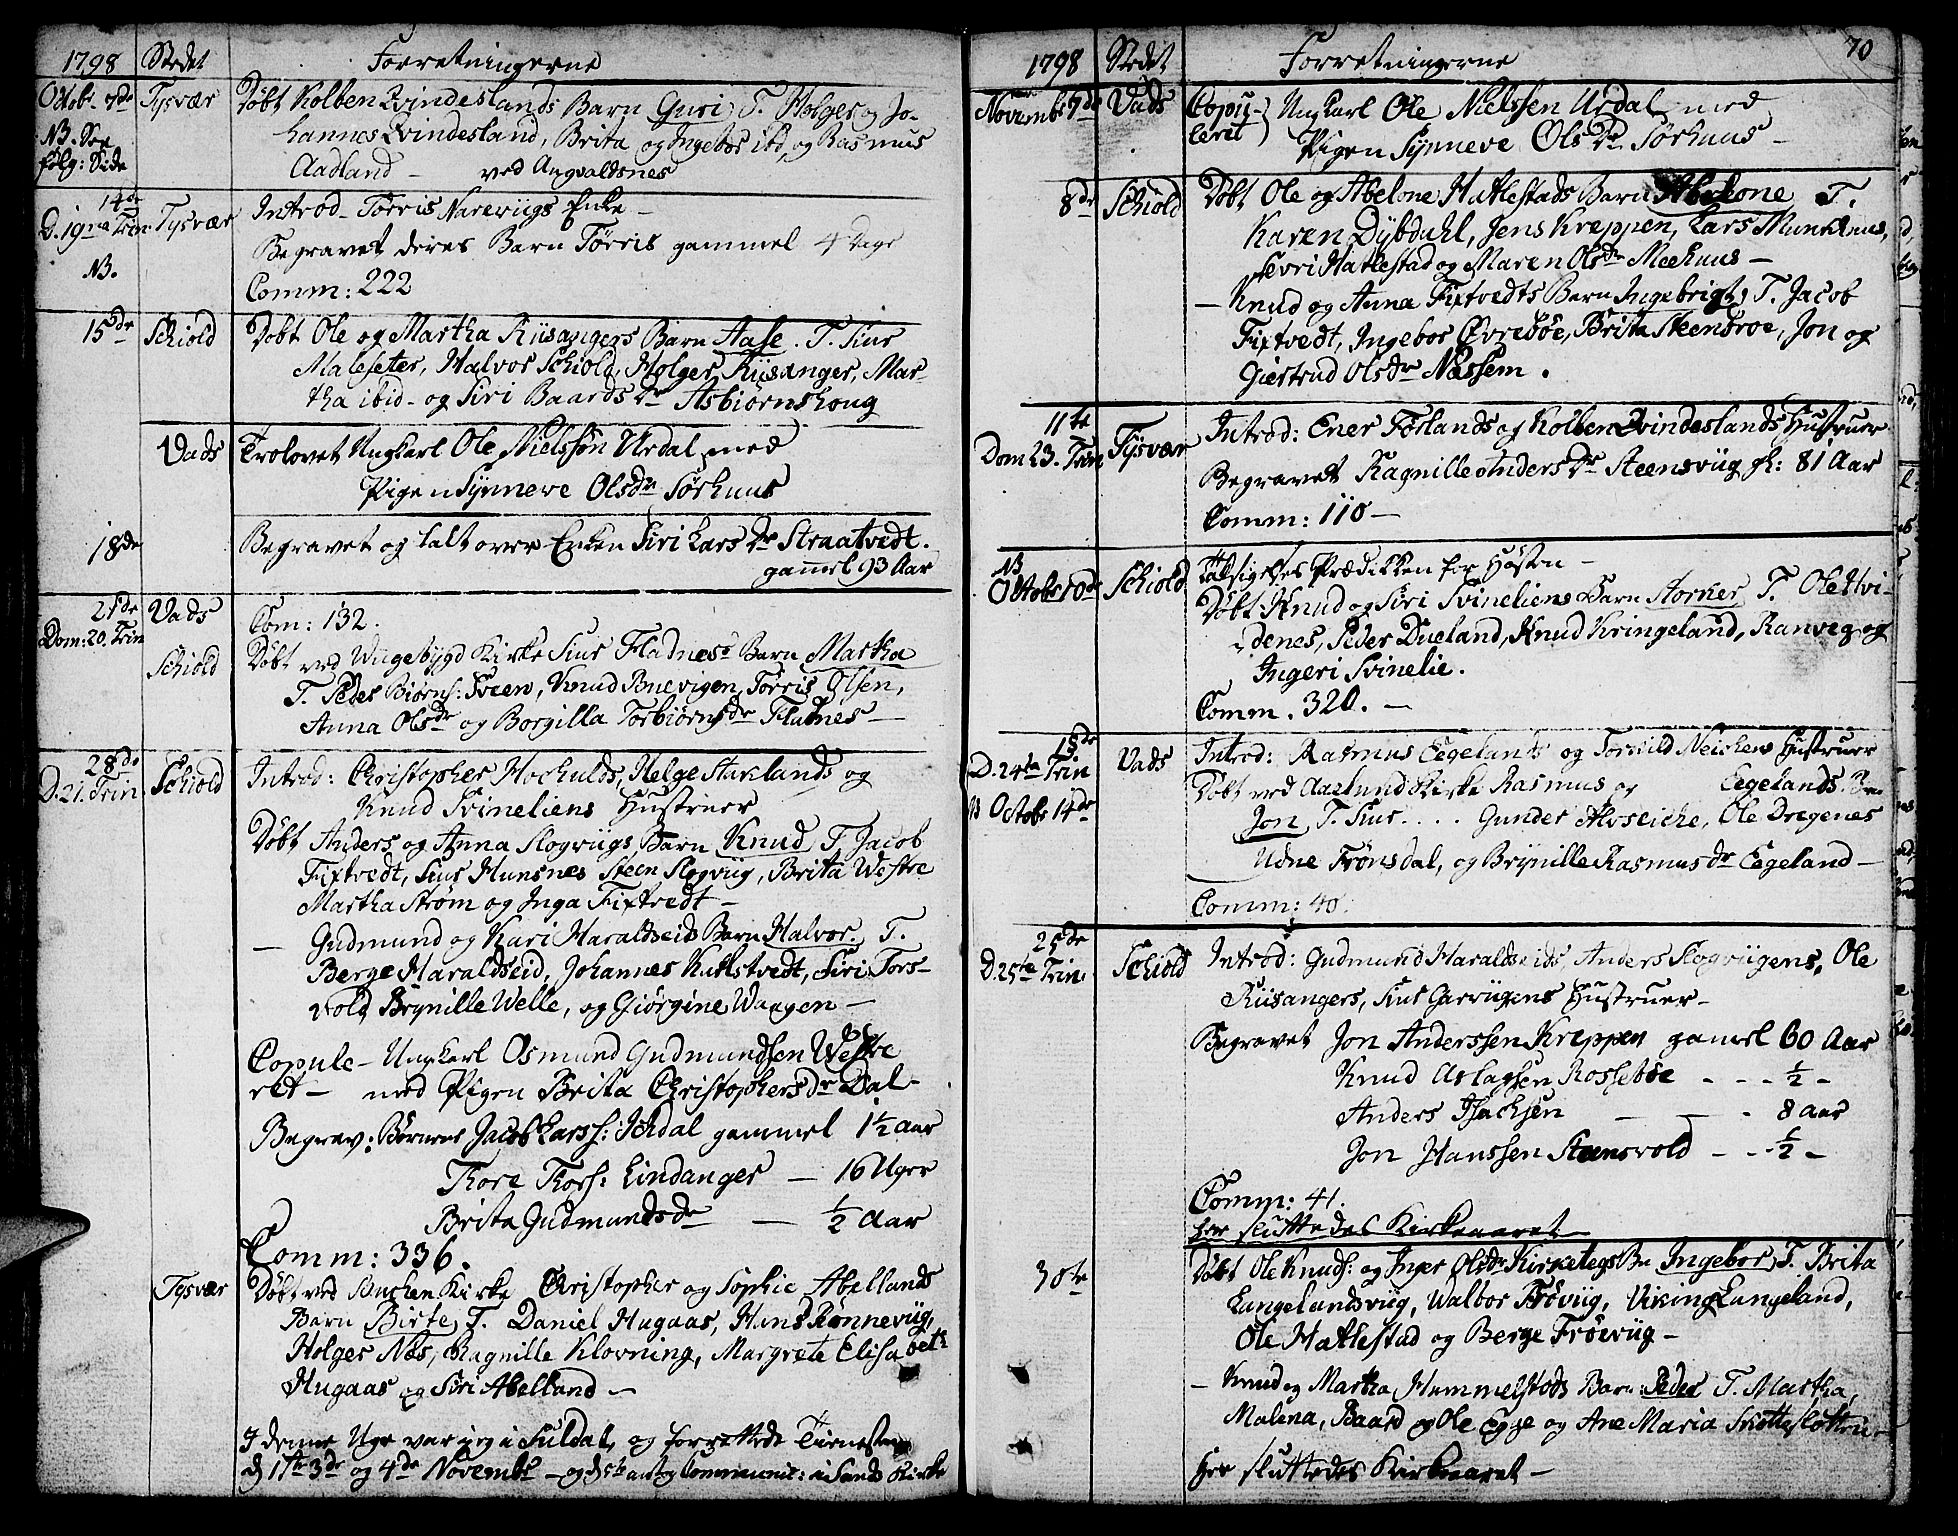 1798 Stedet Forretningerne
Octob. 7de Tysvær Døbt Kolben Qvindeslands Barn Guri, T. Holger og Jo-
NB. See hannes Qvindesland, Brita og Ingebor ibd, og Rasmus
følg: Side Aadland - ved Augvaldsnes
14de
D. 19na Trin. Tysvær Introd - Torris Narevügs Enke -
Begravet deres Barn Tørris gammel 4 Dage
NB.
Comm: 222
15de Schiold Døbt Ole og Martha Riisangers Barn Aase. T. Siur
Maleseter, Halvor Schiold, Holger Riisanger, Mar-
tha ibid - og Siri Baards Dr Asbiørnshoug
Vads Trolovet Ungkarl Ole Nielssøn Urdal med
Pigen Synneve Olsdr Sørhuus
18de Begravet og talt over Enken Siri Lars Dr Straatvedt.
gammel 93 Aar
21de Vads Com: 132.
Dom: 20. Trin
Schiold Døbt ved Wügebÿgd Kirke Siur Fladnes's Barn Martha
T. Peder Biørns: Sveen, Knud Buevigen, Tørris Olsen,
Anna Olsdr og Borgilla Torbiørnsdr Fladnes -
28de Schiold Introd: Christopher Hockulds, Helge Staklands og
D. 21. Trin
Knud Svineliens Hustruer
Døbt Anders og Anna Slogvügs Barn Knud T. Jacob
Fixtvedt, Siur Hunsnes Steen Slogvüg, Brita Westre
Martha Strøm og Inga Fixtvedt -
- Gudmund og Kari Haraldseids Barn Halvor. T.
Berge Haraldseid, Johannes Kallstvedt, Siri Tors-
vold, Brynille Welle, og Giørgine Waagen -
Copule- Ungkarl Osmund Gudmundsen Westre
ret - med Pigen Brita Christophersdr Dal -
Begrav: Børnene Jacob Larss: Ickdal gammel 1½ Aar
Thore Thors: Lindanger - 16 Uger
Brita Gudmundsdr - ½ Aar
Comm: 336.
Tysvær Døbt ved Buchen Kirke Christopher og Sophie Abellands
Barn Birte, T. Daniel Hugaas, Hans Rønnevüg,
Holger Nes, Ragnille Klovning, Margrete Elisabeth
Hugaas og Siri Abelland -
I denne Uge var jeg i Suldal, og forrettede Tienesten
d 1ste 3de og 4de Novembr - og d 5te Communic: i Sands Kirke
70
1798 Stedet Forretningerne
Novemb. 7de Vads Copu- Ungkarl Ole Nielssen Urdal med
leret Pigen Synneve Olsdr Sørhuus -
8de Schiold Døbt Ole og Abelone Hatlestads Barn Abelone T.
Karen Dÿbdahl, Jens Kreppen, Lars Munkhuus,
Sevri Hatlestad og Maren Olsdr Meehuus -
- Knud og Anna Fixtvedts Barn Ingebrigt, T. Jacob
Fixtvedt, Ingebor Øvrebøe, Brita Steensroe, Jon og
Giertrud Olsdr Næssem.
11te Tysvær Introd: Ener Førlands og Kolben Qvindeslands Hustruer
Dom 23. Trin
Begravet Ragnille Anders Dr Steensvüg gl: 81 Aar
Comm: 110 -
NB
Octobr 10de Schiold Taksigelses Prædikken for Høsten -
Døbt Knud og Siri Svineliens Barn Aorner T. Ole Hvi-
denes, Peder Dueland, Knud Kringeland, Ranveg og
Ingeri Svinelie.
Comm. 320. -
18de Vads Introd: Rasmus Eegelands og Torkild Neichens Hustruer
D. 24de Trin
NB Octobr 14de Døbt ved Aarlund Kirke Rasmus og Eegelands Bn
Jon, T. Siur .... Gunder Alvseiche, Ole Dregenes
Udne Frønsdal, og Brynille Rasmusdr Eegeland -
Comm: 40.
25de Schiold Introd: Gudmund Haraldseids, Anders Slogvügens, Ole
D. 25te Trin.
Riisangers, Siur Garvügens Hustruer -
Begravet Jon Anderssen Kreppen gamel 60 Aar
Knud Aslagsen Rossebøe - - - ½ -
Anders Isachsen - - - 8 Aar
Jon Hanssen Steensvold - - - ½ -
Comm: 41.
her sluttedes Kirkeaaret -
30te Døbt Ole Knuds: og Inger Olsdr KirketegsBn Ingebor, T. Brita
Langelandsvüg, Walbor Frøvüg, Viking Langeland,
Ole Hatlestad og Berge Frøevüg -
- Knud og Martha Hummelstads Barn: Peder T. Martha,
Malena, Baard og Ole Egge og Ane Maria
her sluttedes Kirkeaaret -